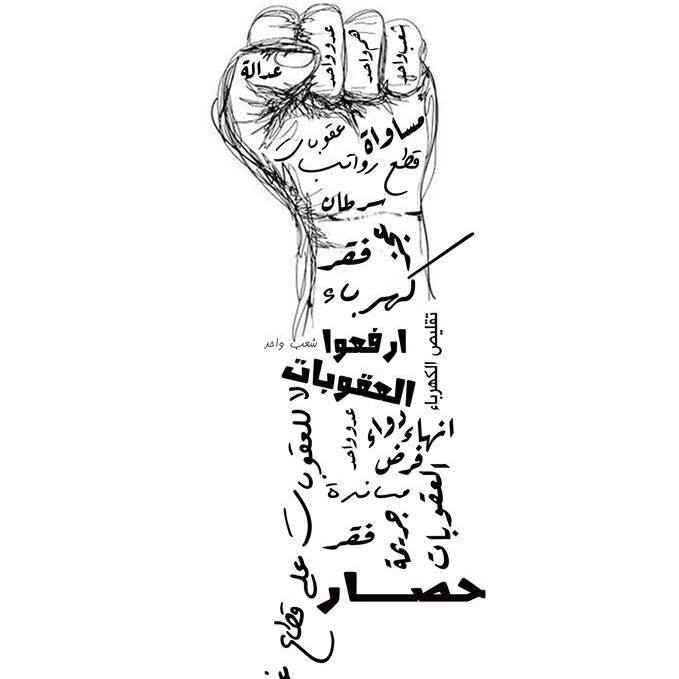 عدالة
عدو واحد
هم واحد
شعب واحد
مساواة
عقوبات
قطع رواتب
سرطان
فقر
كهرباء
تقليص الكهرباء
ارفعوا
شعب واحد
العقوبات
لا للعقوبات على قطاع غز
انهاء
دواء
عدو واحد
فرض
العقوبات
مساندة
جريمة
فقر
حصار